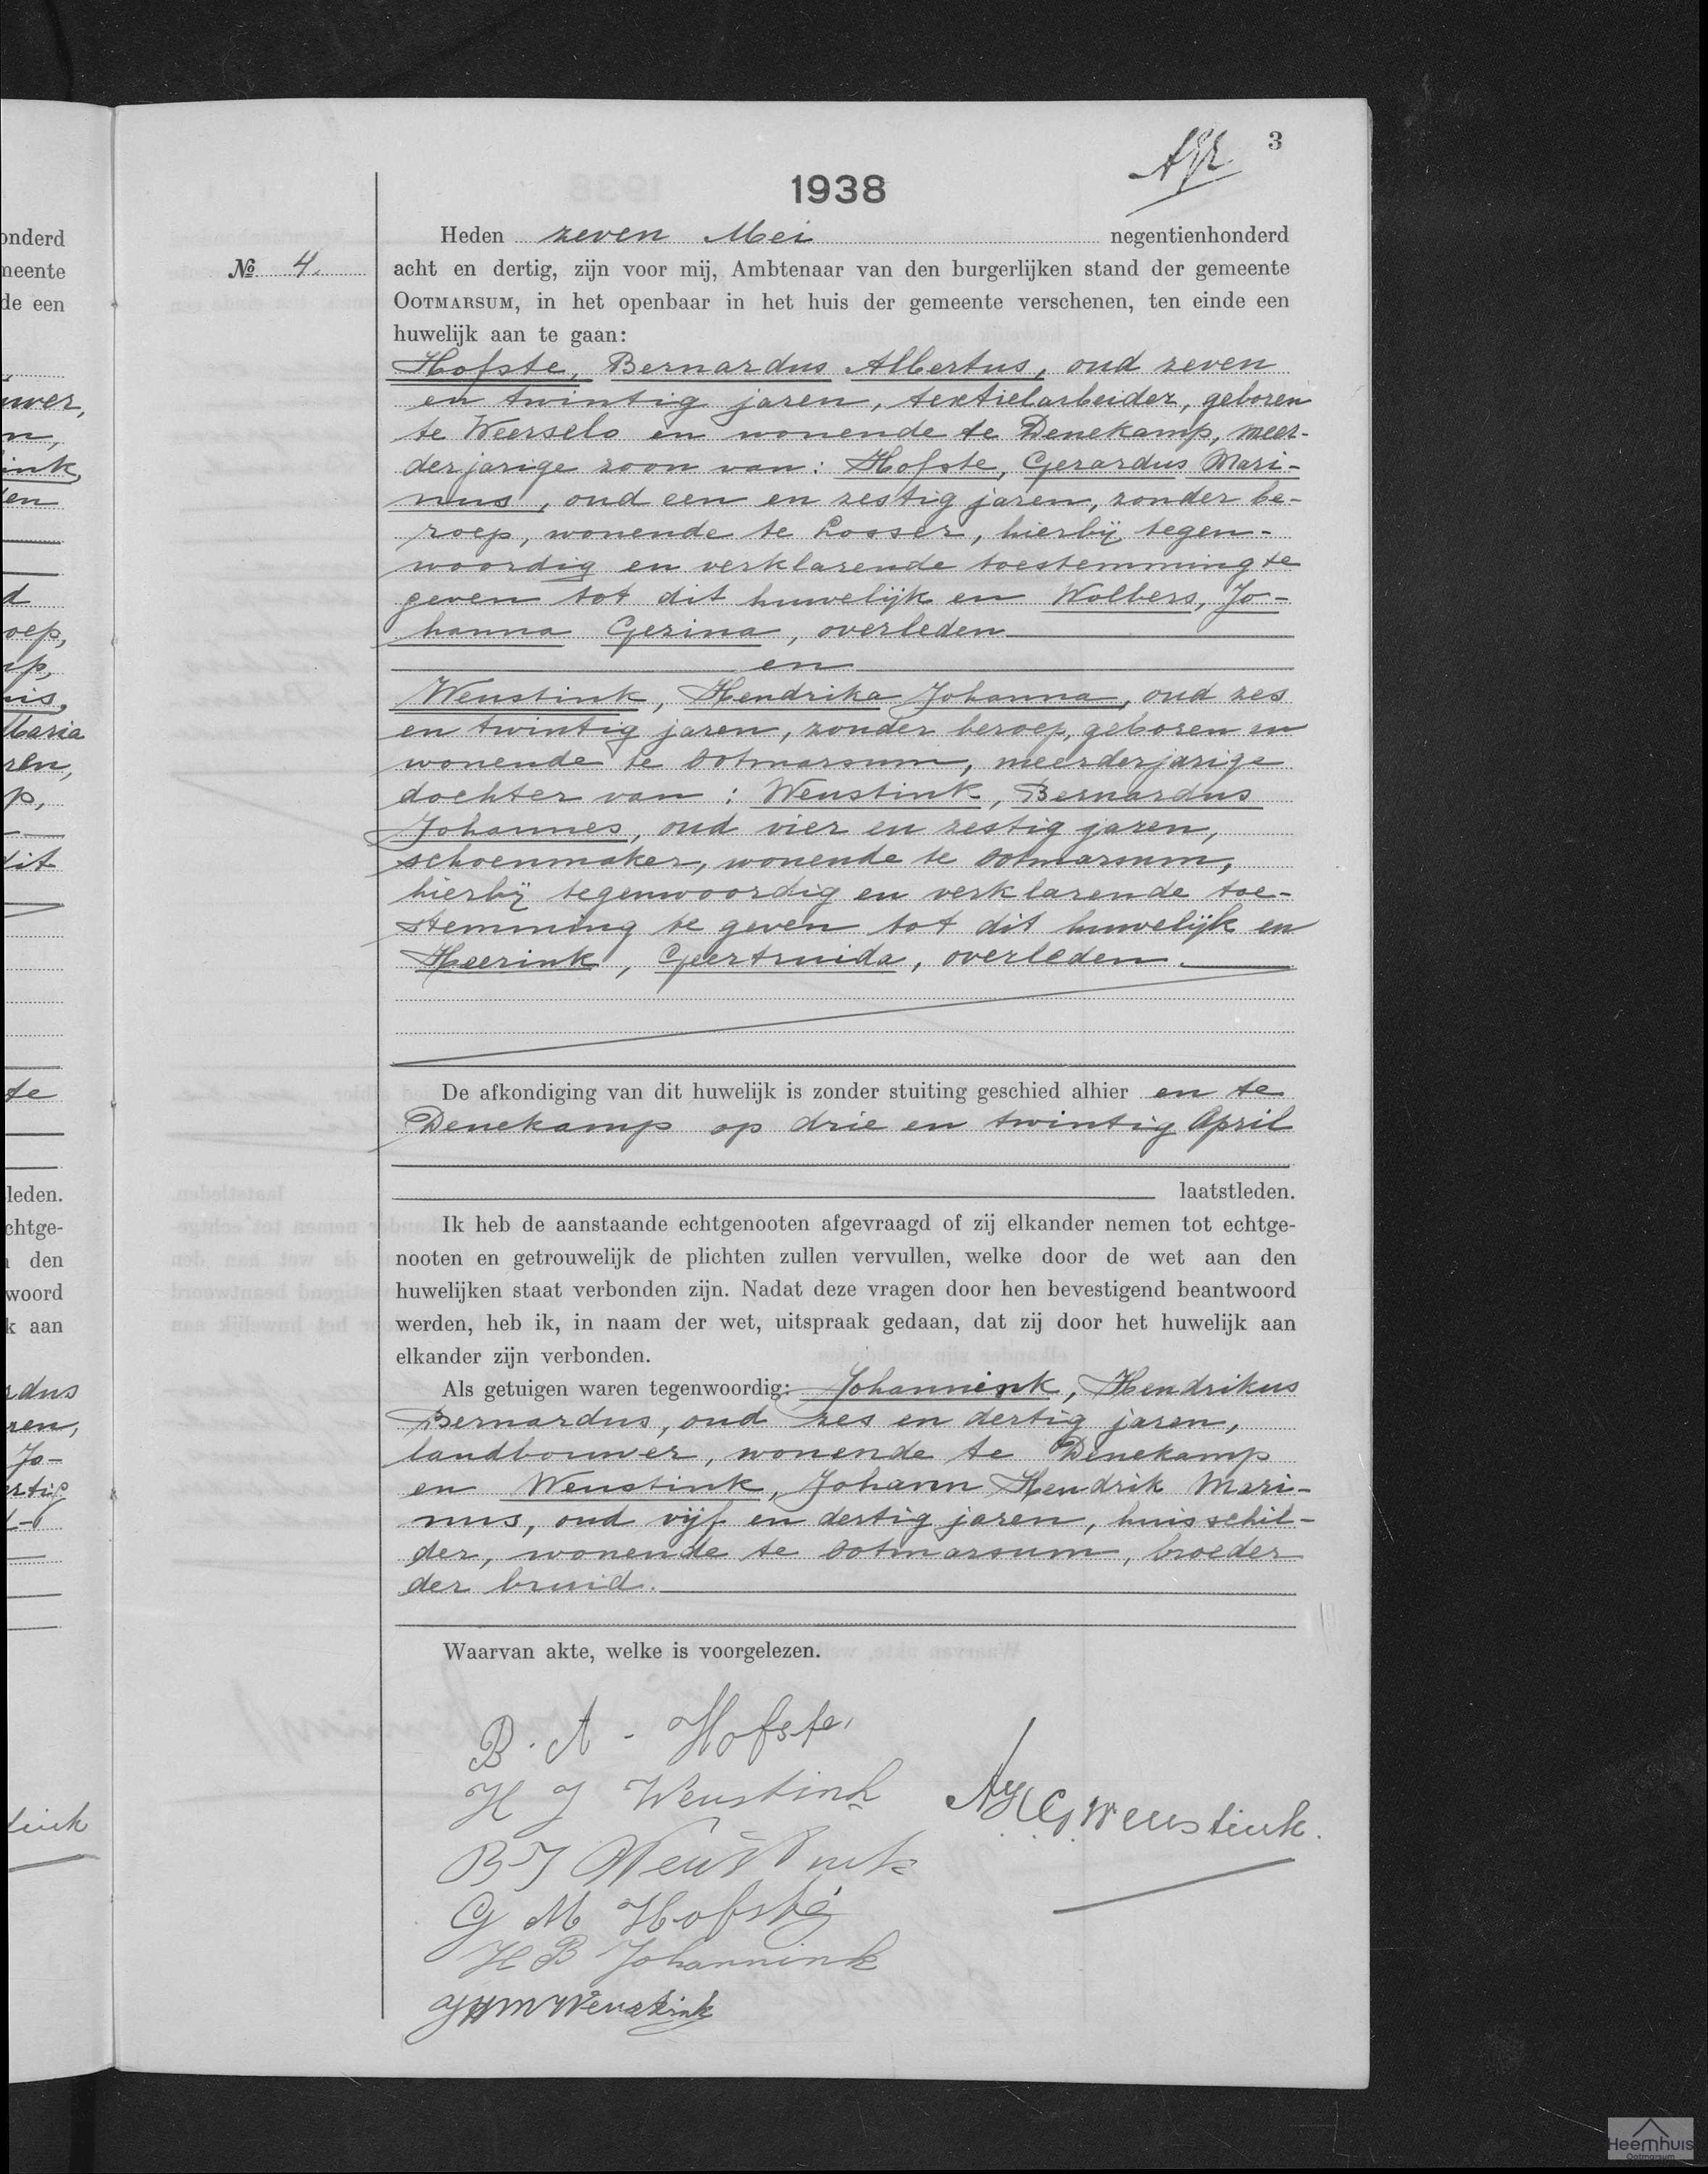 3
1938
Heden zeven Mei negentienhonderd
No 4.
acht en dertig, zijn voor mij, Ambtenaar van den burgerlijken stand der gemeente
OOTMARSUM, in het openbaar in het huis der gemeente verschenen, ten einde een
huwelijk aan te gaan:
Hofste, Bernardus Albertus, oud zeven
en twintig jaren, textielarbeider, geboren
te Weerselo en wonende te Denekamp, meer-
derjarige zoon van: Hofste, Gerardus Mari-
nus, oud een en zestig jaren, zonder be-
roep, wonende te Losser, hierbij tegen-
woordig en verklarende toestemming te
geven tot dit huwelijk en Wolbers, Jo-
hanna Gezina, overleden
en
Weustink, Hendrika Johanna, oud zes
en twintig jaren, zonder beroep, geboren en
wonende te Ootmarsum, meerderjarige
dochter van: Weustink, Bernardus
Johannes, oud vier en zestig jaren,
schoenmaker, wonende te Ootmarsum,
hierbij tegenwoordig en verklarende toe-
stemming te geven tot dit huwelijk en
Heerink, Geertruida, overleden.
De afkondiging van dit huwelijk is zonder stuiting geschied alhier en te
Denekamp op drie en twintig April
laatstleden.
Ik heb de aanstaande echtgenooten afgevraagd of zij elkander nemen tot echtge-
nooten en getrouwelijk de plichten zullen vervullen, welke door de wet aan den
huwelijken staat verbonden zijn. Nadat deze vragen door hen bevestigend beantwoord
werden, heb ik, in naam der wet, uitspraak gedaan, dat zij door het huwelijk aan
elkander zijn verbonden.
Als getuigen waren tegenwoordig: Johannink, Hendrikus
Bernardus, oud zes en dertig jaren,
landbouwer, wonende te Denekamp
en Weustink, Johann Hendrik Mari-
nus, oud vijf en dertig jaren, huisschil-
der, wonende te Ootmarsum, broeder
der bruid.
Waarvan akte, welke is voorgelezen.
B. A. Hofste,
H J Weustink
G. Weustink.
B J Weustink
G M Hofste
H B Johannink
J H M Weustink
Heemhuis
Ootmarsum